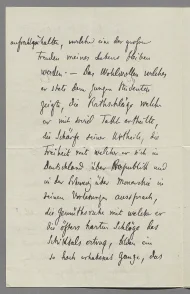 aufrechtzuhalten, welche eine der großen
Freuden meines Lebens bleiben
werden. — Das Wohlwollen welches
er stets dem jungen Studenten
zeigte, die Rathschläge welche
er mit soviel Takt ertheilte,
die Schärfe seiner Urtheile, die
Freiheit mit welcher er sich in
Deutschland über Republik und
in der Schweiz über Monarchie in
seinen Vorlesungen aussprach,
die Gemüthsruhe mit welcher er
die öfters harten Schläge des
Schicksals ertrug,
so hoch erhabenes Ganze, das